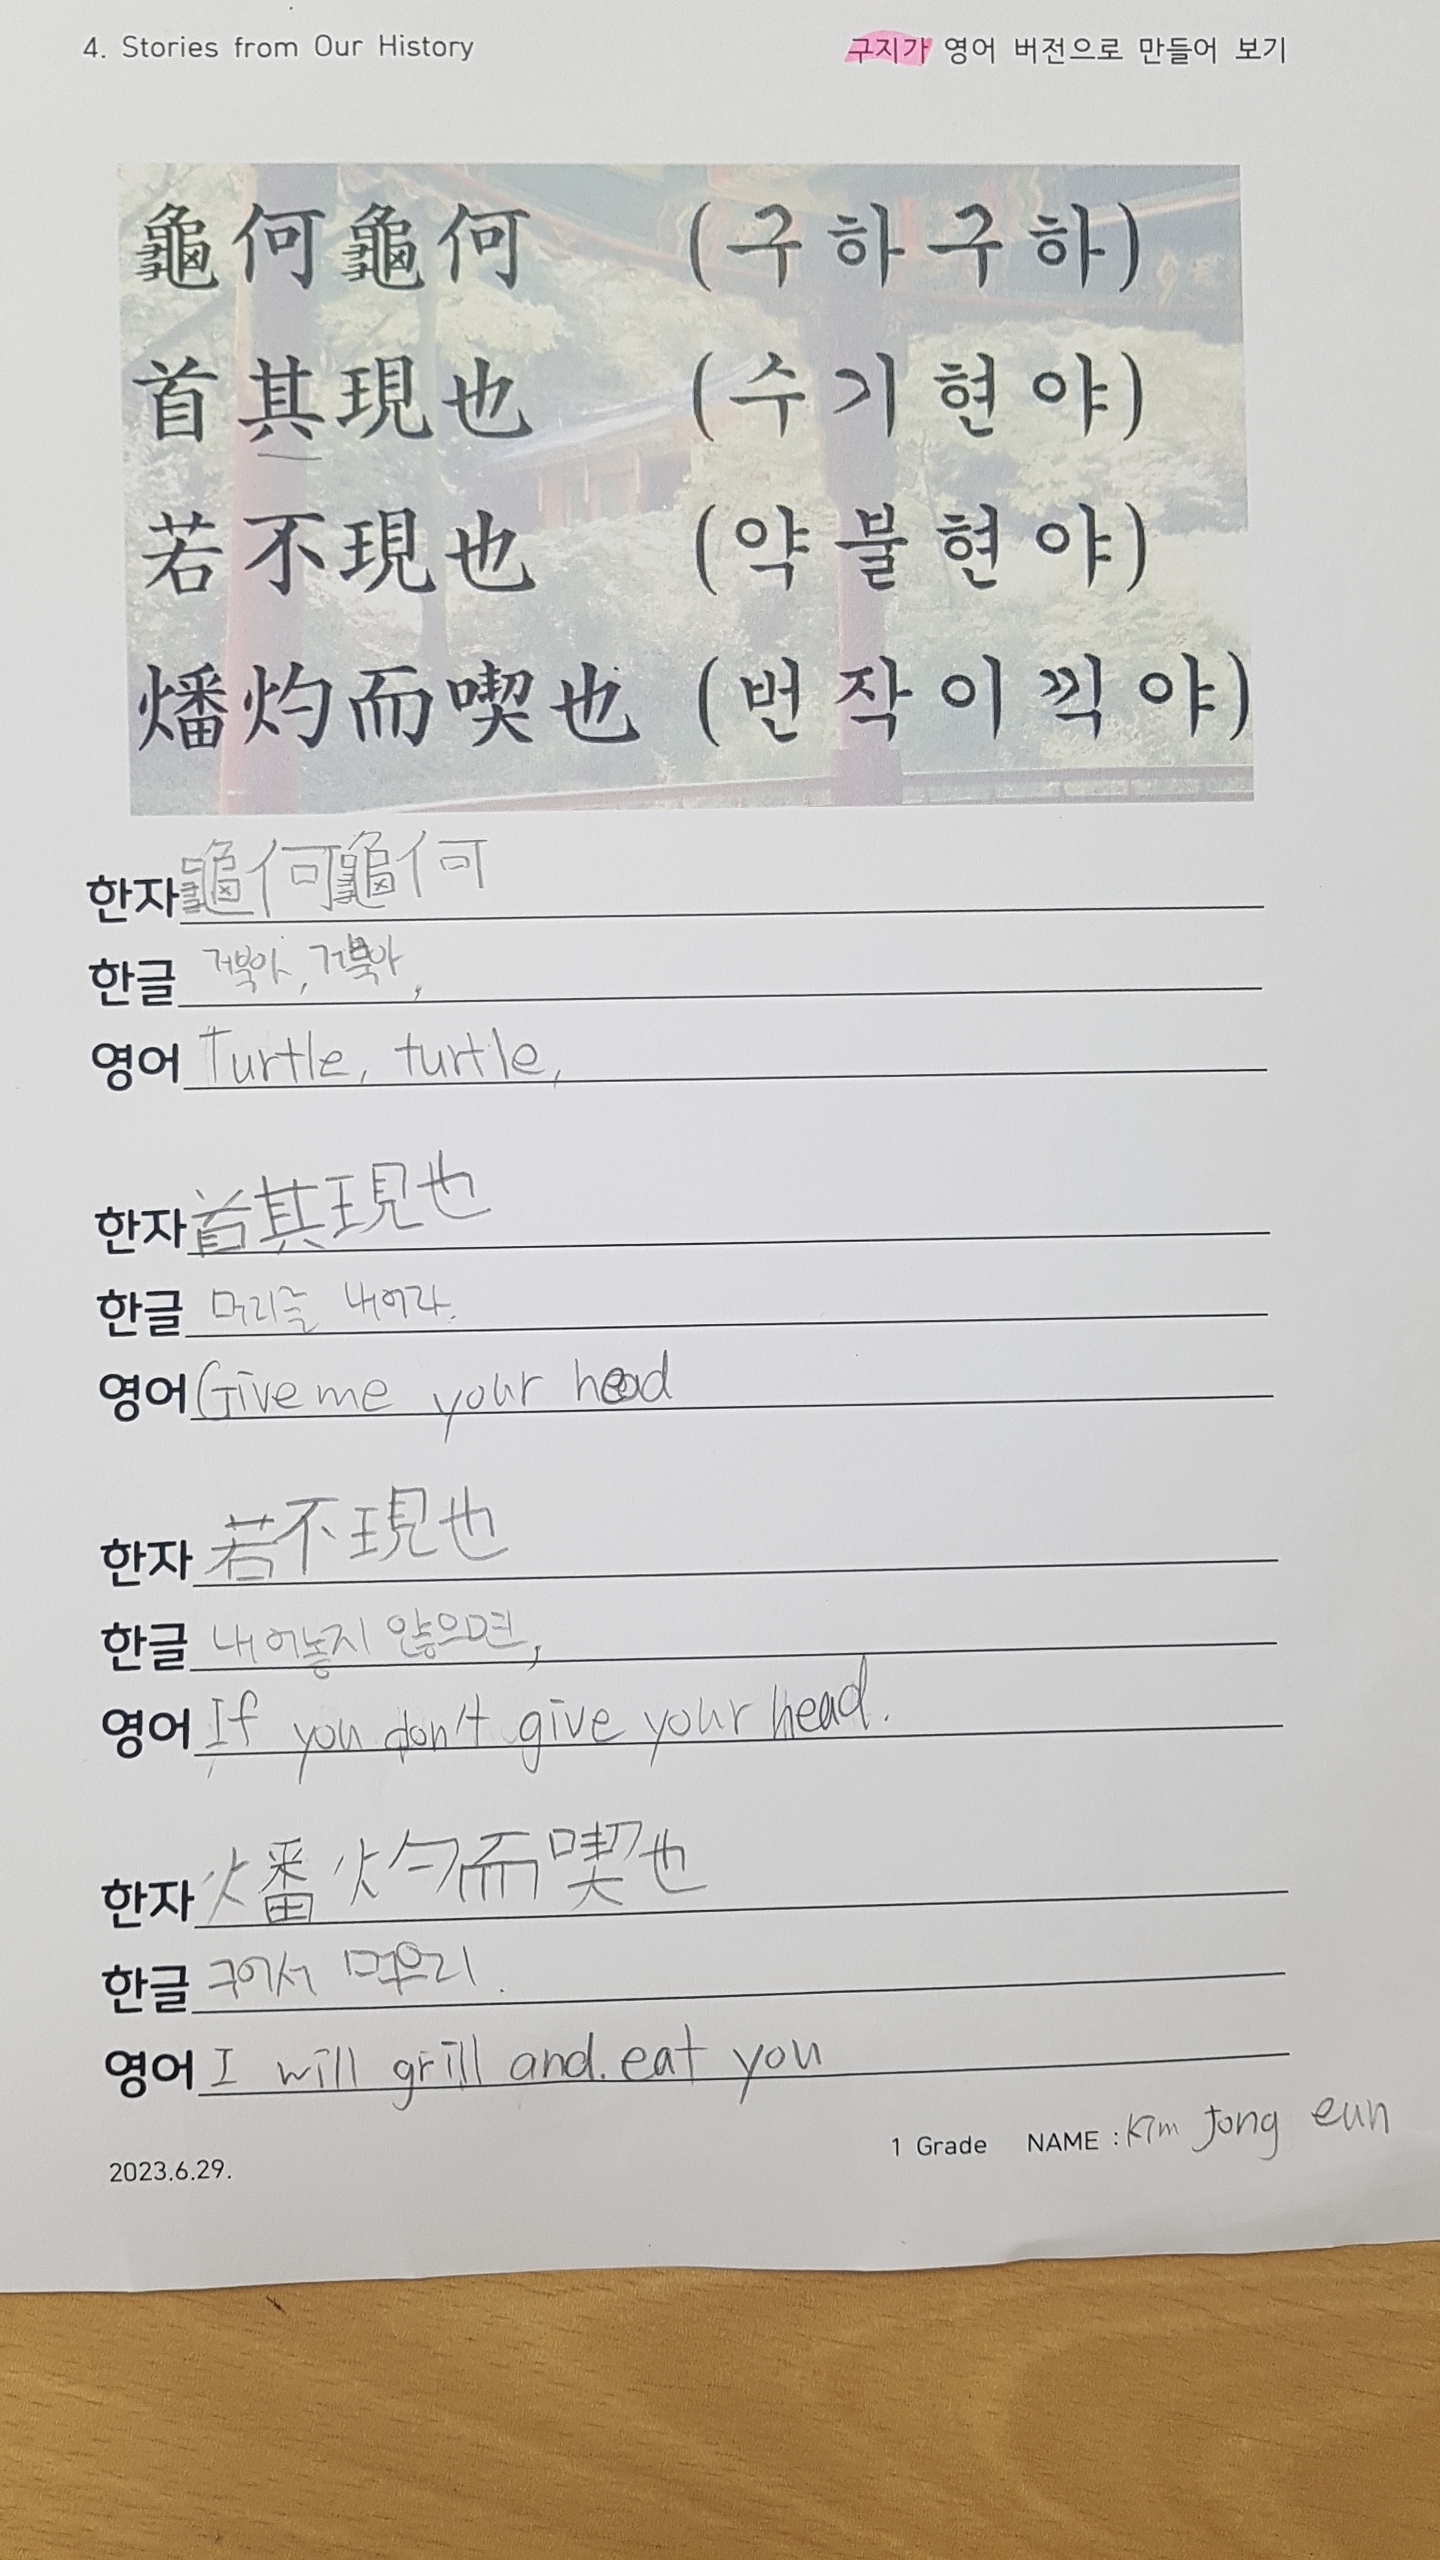 4. Stories from Our History 구지가 영어 버전으로 만들어 보기
龜何龜何 (구하구하)
首其現也 (수기현야)
若不現也 (약불현야)
燔灼而喫也 (번작이끽야)
한자 龜何龜何
한글 거북아, 거북아,
영어 Turtle, turtle,
한자 首其現也
한글 머리를 내어라.
영어 Give me your head
한자 若不現也
한글 내어놓지 않으면,
영어 If you don't give your head.
한자 燔灼而喫也
한글 구어서 먹으리.
영어 I will grill and. eat you
1 Grade NAME : Kim Jong eun
2023.6.29.